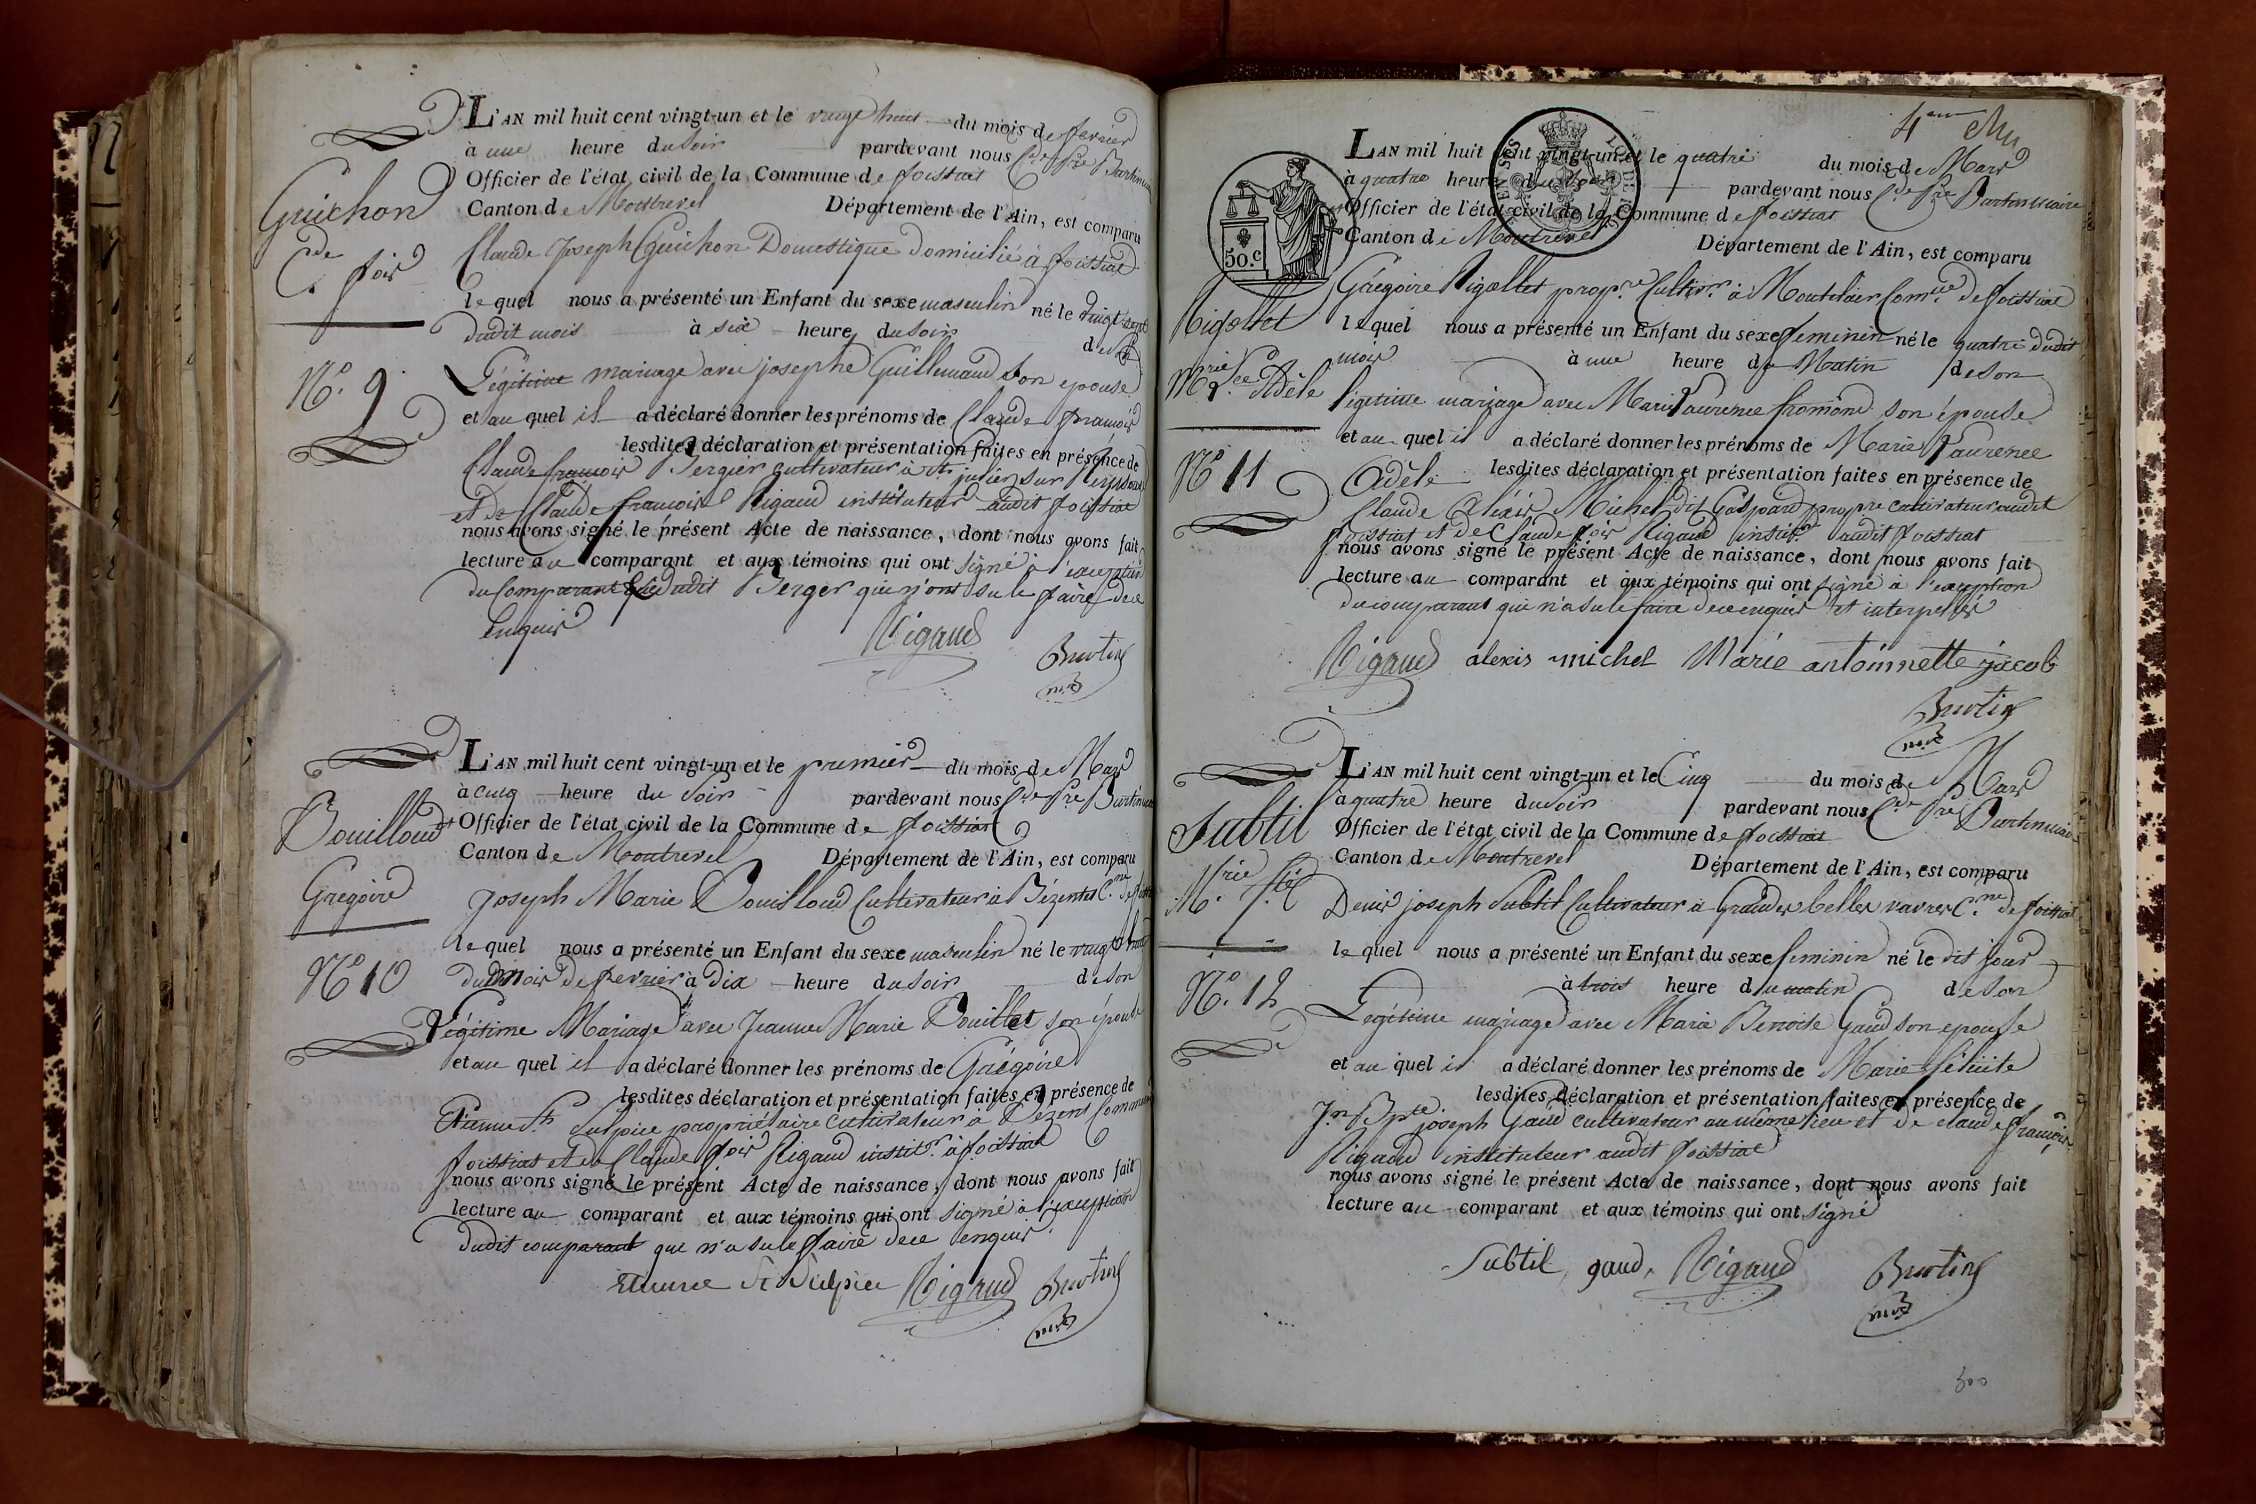 L'AN mil huit cent vingt-un et le vingt huit du mois de fevrier
à une heure du soir pardevant nous C.de P.re Burtin maire
Officier de l'état civil de la Commune de foissiat
Canton de Montrevel Département de l'Ain, est comparu
Guichon
C.de fois
Claude Joseph Guichon Domestique domicilié à foissiat
lequel nous a présenté un Enfant du sexe masculin né le vingt sept
dudit mois à six heure du soir de son
N.° 9
Légitime mariage avec josephe Guillemaud son epouse
et au quel il a déclaré donner les prénoms de Claude françois
lesdites déclaration et présentation faites en présence de
Claude françois Berger cultivateur à St. julien sur Reyssouze
et de Claude françois Rigaud instituteur audit foissiat
nous avons signé le présent Acte de naissance, dont nous avons fait
lecture au comparant et aux témoins qui ont signé à l'exception
du Comparant dudit Berger qui n'ont su le faire de ce
enquis
Rigaud
Burtin
L'AN mil huit cent vingt-un et le premier du mois de Mars
à cinq heure du soir pardevant nous C.de P.re Burtin maire
Officier de l'état civil de la Commune de foissiat
Canton de Montrevel Département de l'Ain, est comparu
Bouilloud
Grégoire
Joseph Marie Bouilloud Cultivateur à Bézentet C.ne de
lequel nous a présenté un Enfant du sexe masculin né le vingt huit
du mois de fevrier à dix heure du soir de son
N.° 10
Légitime Mariage avec Jeanne Marie Bouillet son épouse
et au quel il a déclaré donner les prénoms de Grégoire
lesdites déclaration et présentation faites en présence de
Etienne St. Sulpice propriétaire cultivateur à Bézent Commune
foissiat et de Claude fois Rigaud instit.r à foissiat
nous avons signé le présent Acte de naissance, dont nous avons fait
lecture au comparant et aux témoins qui ont signé à l'exception
dudit comparant qui n'a su le faire de ce enquis
Etienne St Sulpice Rigaud Burtin
4
L'AN mil huit cent vingt-un et le quatre du mois de Mars
à quatre heure du soir pardevant nous C.de P.re Burtin maire
Officier de l'état civil de la Commune de foissiat
Canton de Montrevel Département de l'Ain, est comparu
50.c
Rigollet
M.rie L.ce Adèle
Grégoire Rigollet prop.re Cultiv.r à Montclair Com.ne de foissiat
lequel nous a présenté un Enfant du sexe feminin né le quatre dudit
mois à une heure du Matin de son
N.° 11
légitime mariage avec Marie Laurence fromond son épouse
et au quel il a déclaré donner les prénoms de Marie Laurence
Adèle lesdites déclaration et présentation faites en présence de
Claude Alexis Michel dit Gaspard propre cultivateur audit
foissiat et de Claude fois Rigaud instit.r audit foissiat
nous avons signé le présent Acte de naissance, dont nous avons fait
lecture au comparant et aux témoins qui ont signé à l'exception
du comparant qui n'a su le faire de ce enquis et interpellé
Rigaud alexis michel Marie antoinnette jacob
Burtin
L'AN mil huit cent vingt-un et le Cinq du mois de Mars
à quatre heure du soir pardevant nous C.de P.re Burtin maire
Officier de l'état civil de la Commune de foissiat
Canton de Montrevel Département de l'Ain, est comparu
Subtil
M.rie f.té
Denis joseph Subtil Cultivateur à Grandes belles vavres C.ne de foissiat
lequel nous a présenté un Enfant du sexe feminin né le dit jour
à trois heure du matin de son
N.° 12
Légitime mariage avec Marie Benoite Gaud son epouse
et au quel il a déclaré donner les prénoms de Marie félicité
lesdites déclaration et présentation faites en présence de
J.n Bpte. joseph Gaud cultivateur au même lieu et de claude françois
Rigaud instituteur audit foissiat
nous avons signé le présent Acte de naissance, dont nous avons fait
lecture au comparant et aux témoins qui ont signé
Subtil gaud Rigaud Burtin